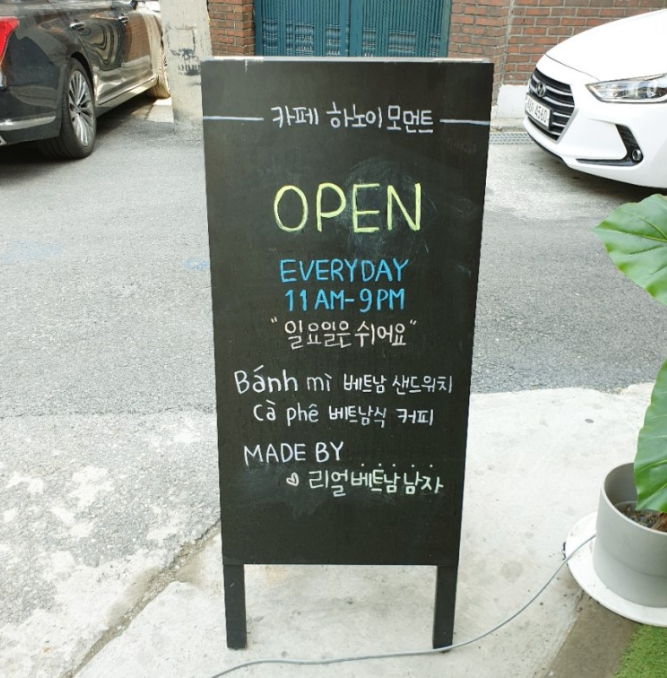 카페 하노이모먼트
OPEN
EVERYDAY
11AM-9PM
"일요일은 쉬어요"
Bánh mì 베트남 샌드위치
Cà phê 베트남식 커피
MADE BY
리얼베트남남자